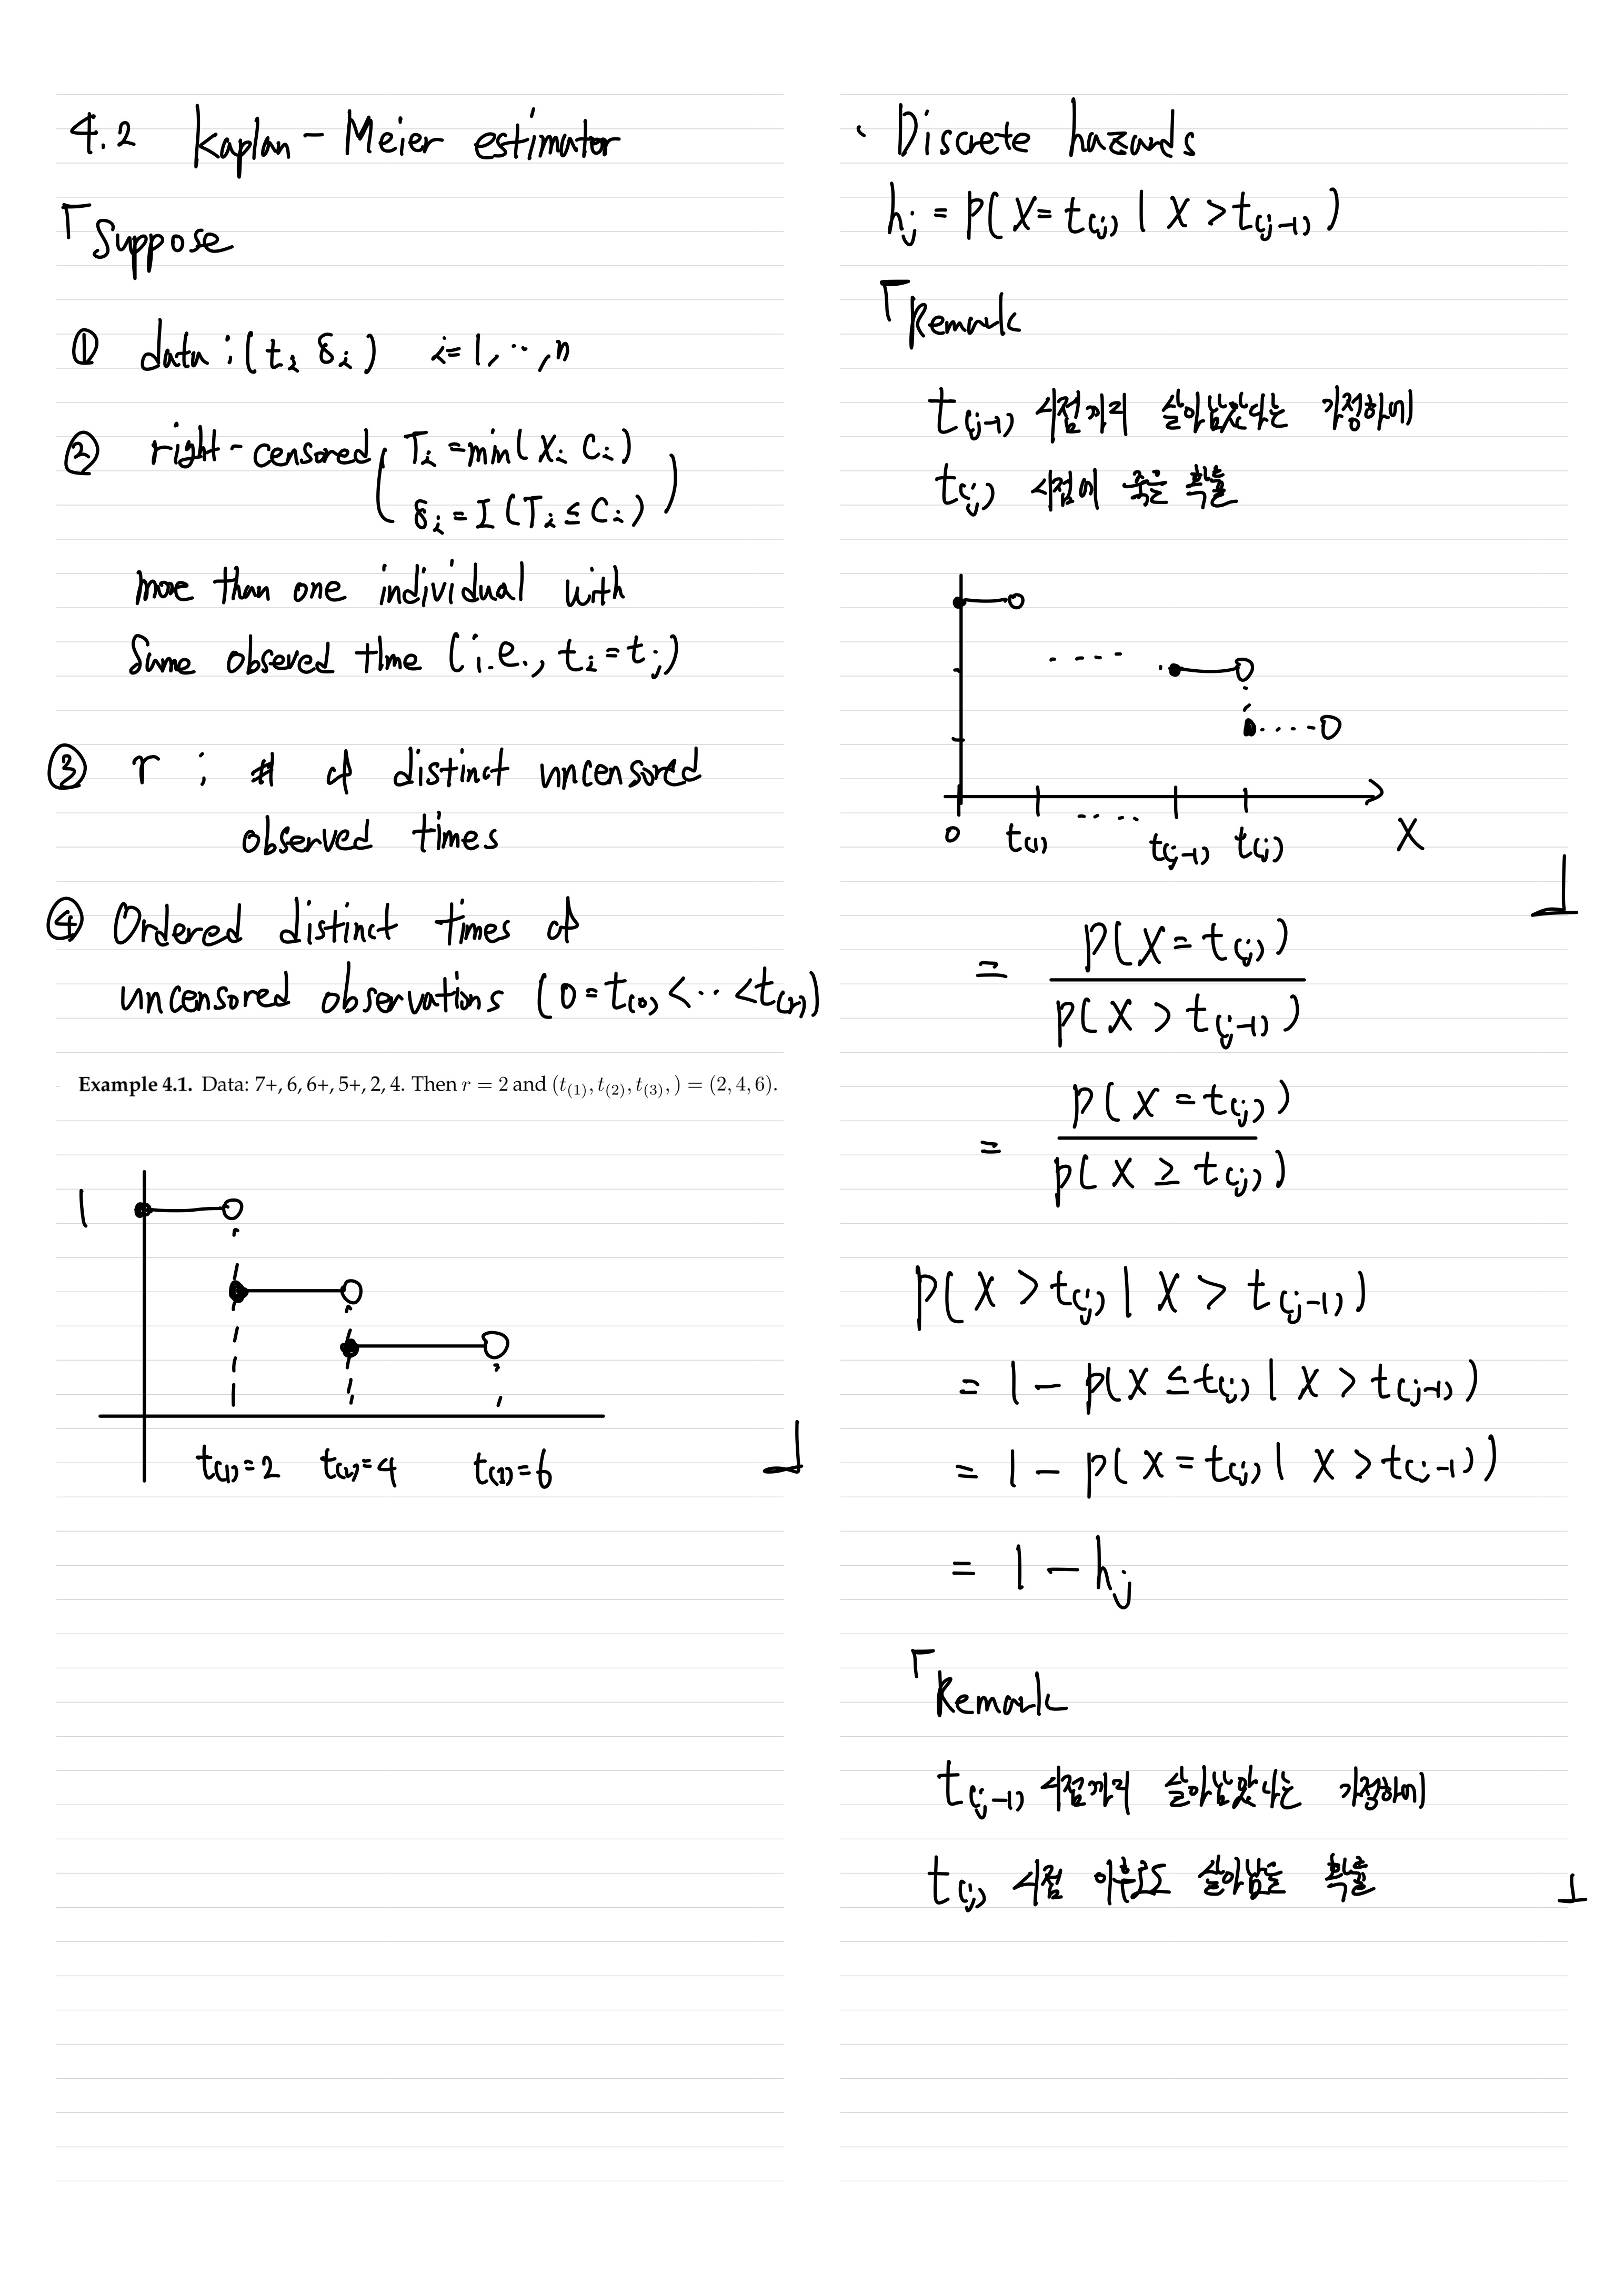 4.2 Kaplan - Meier estimator
「Suppose
① data : ( t_i δ_i ) i = 1, ⋯, n
② right - censored ( T_i = min( X_i C_i )
δ_i = I ( T_i ≤ C_i ) )
more than one individual with
Same obseved time ( i.e., t_i = t_j )
③ r ; # of distinct uncensored
observed times
④ Ordered distinct times of
uncensored observations ( 0 = t_(0) < ⋯ < t_(r) )
Example 4.1. Data: 7+, 6, 6+, 5+, 2, 4. Then r = 2 and (t_(1), t_(2), t_(3), ) = (2, 4, 6).
1
t_(1) = 2 t_(2) = 4 t_(3) = 6
」
· Discrete hazards
h_j = P( X = t_(j) | X > t_(j-1) )
「Remark
t_(j-1) 시점까지 살아남았다는 가정하에
t_(j) 시점에 죽을 확률
0 t_(1) ⋯ t_(j-1) t_(j) X
」
= P( X = t_(j) ) / P( X > t_(j-1) )
= P( X = t_(j) ) / P( X ≥ t_(j) )
P( X > t_(j) | X > t_(j-1) )
= 1 - P( X ≤ t_(j) | X > t_(j-1) )
= 1 - P( X = t_(j) | X > t_(j-1) )
= 1 - h_j
「Remark
t_(j-1) 시점까지 살아남았다는 가정하에
t_(j) 시점 이후로도 살아남을 확률
」